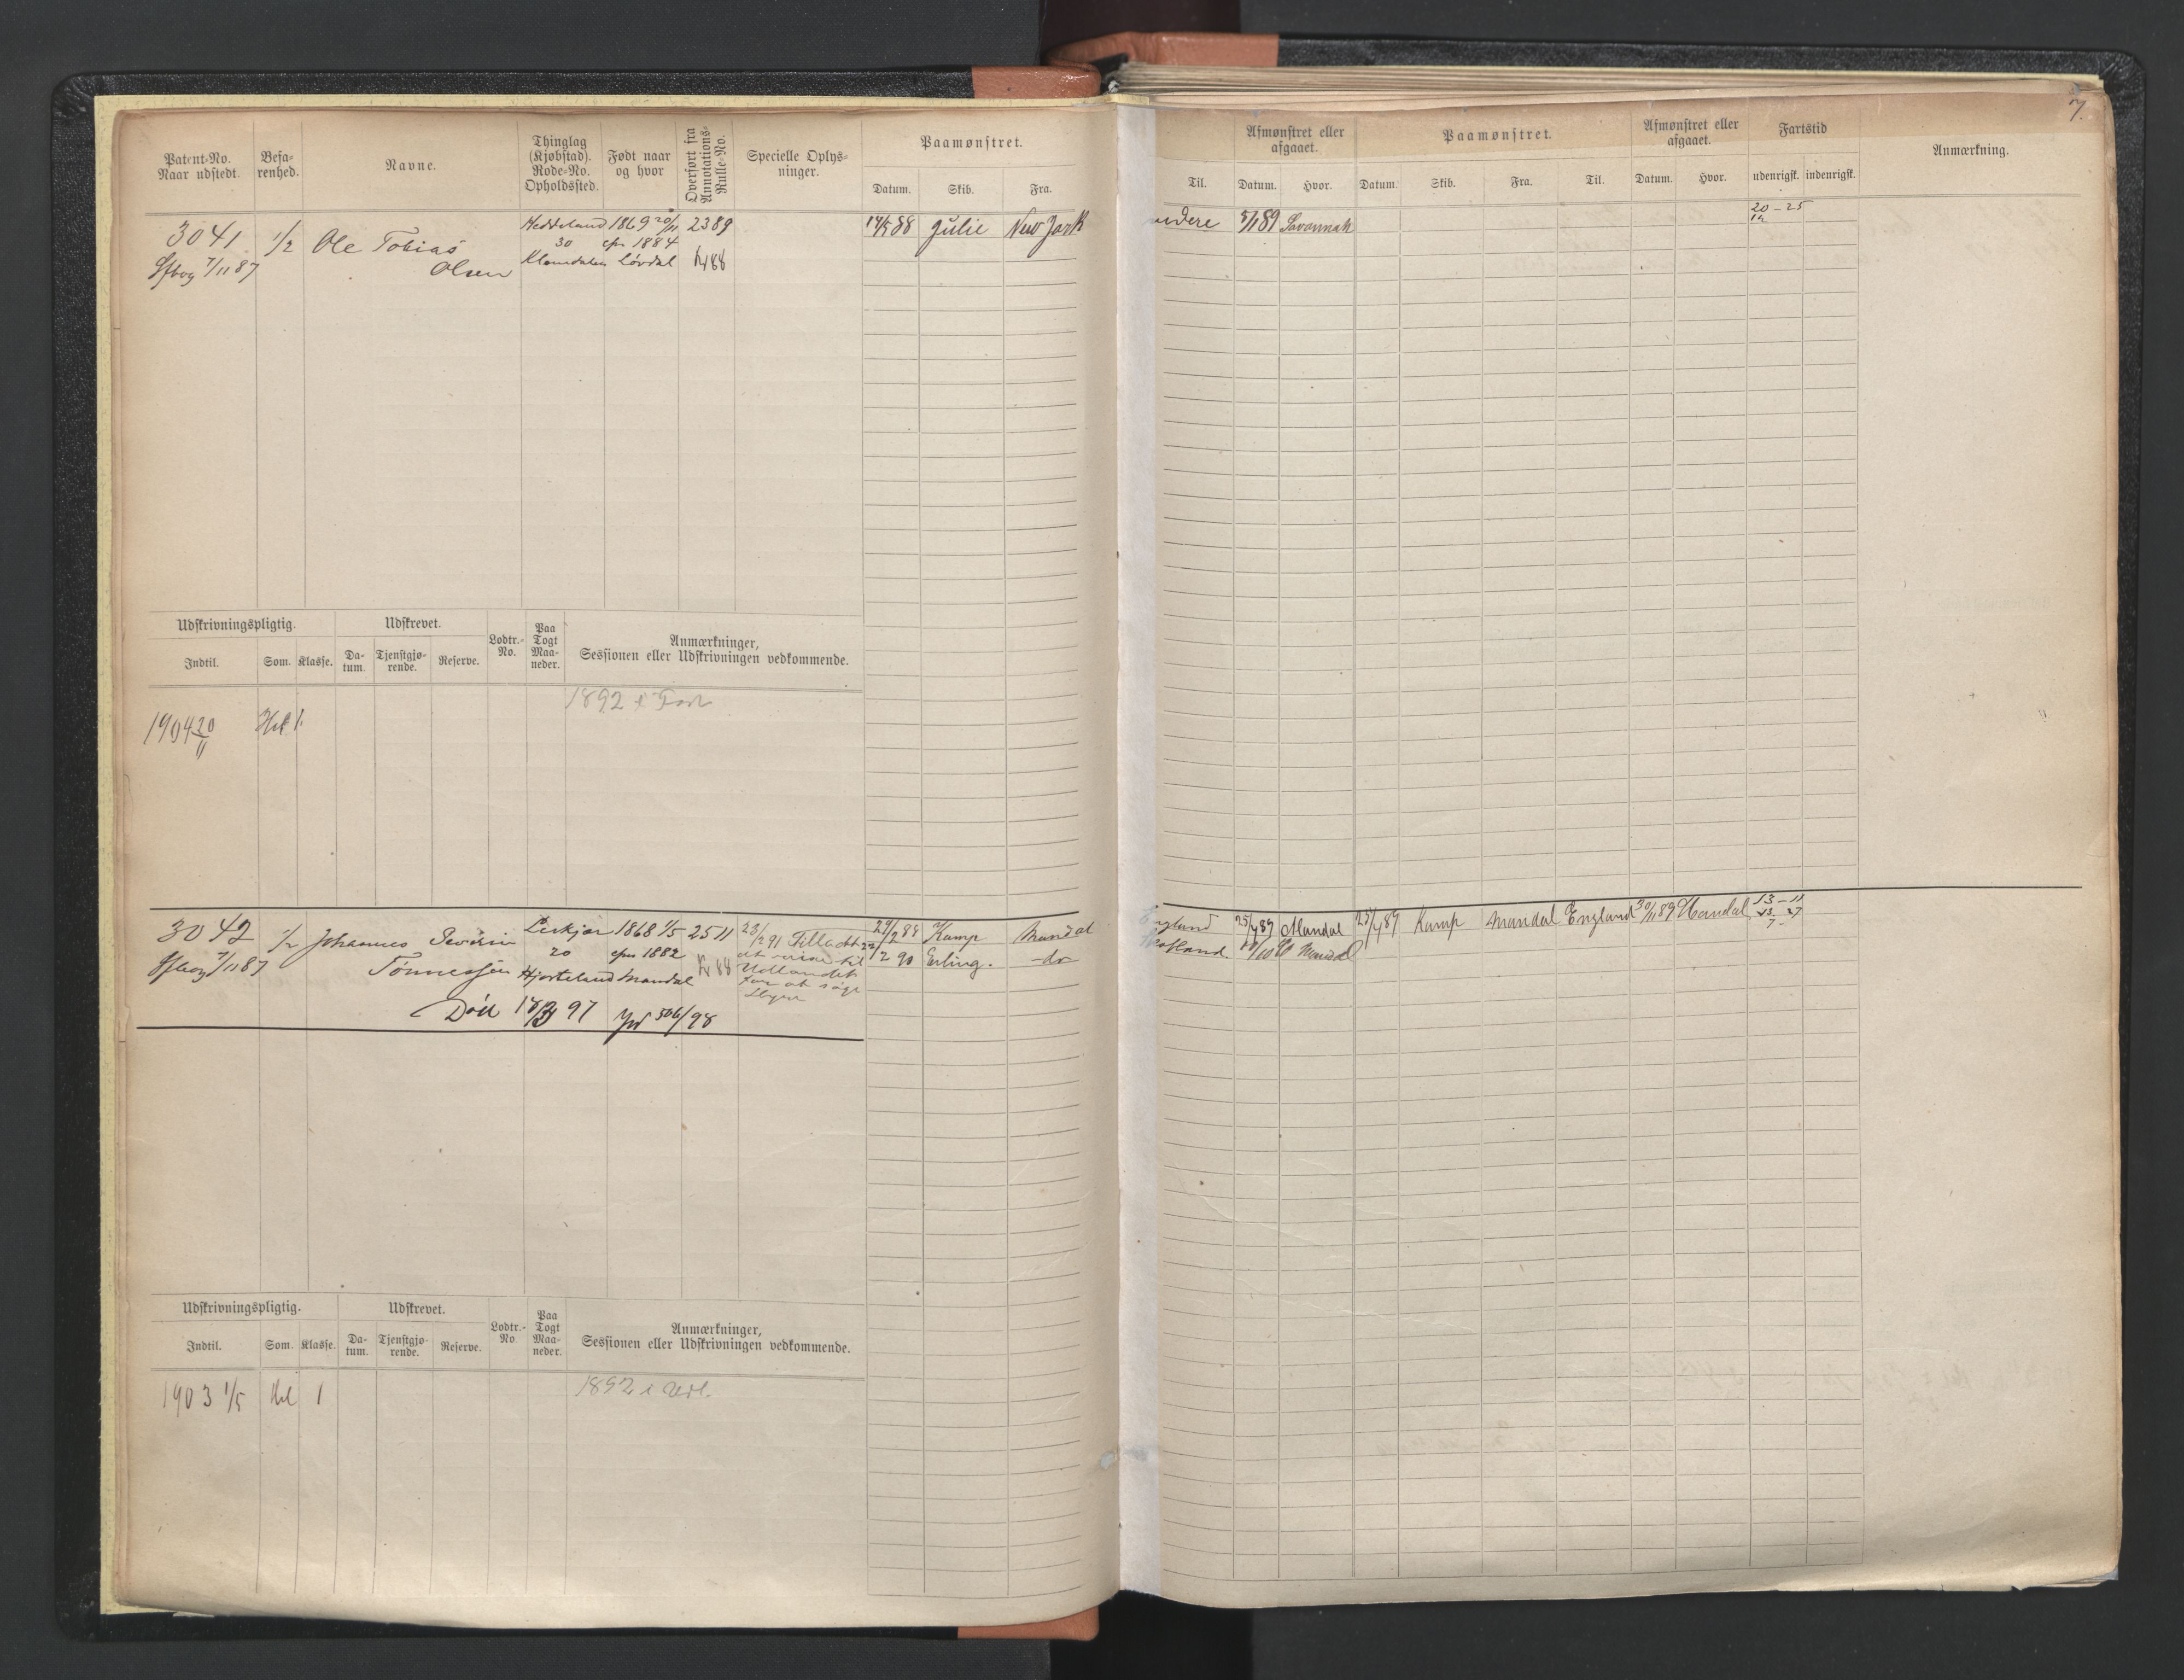 7.
Patent-No. Naar udstedt. Befa-renhed. Navne. Thinglag (Kjøbstad). Rode-No. Opholdssted. Født naar og hvor Overført fra Annotations-Rulle-No. Specielle Oplys-ninger. Paamønstret. Datum. Skib. Fra.
Til. Afmønstret eller afgaaet. Datum. Hvor. Paamønstret. Datum. Skib. Fra. Til. Afmønstret eller afgaaet. Datum. Hvor. Fartstid udenrigsk. indenrigsk. Anmærkning.
3041 1/2 Ole Tobias Heddeland 1869 20/11 2389 14/5 88 Julie New York
videre 5/1 89 Savannah 20-25
Sfbog 7/11 87 Olsen 30 cfm 1884
Løvdal 88
Udskrivningspligtig. Udskrevet. Lodtr.-No. Paa Togt Maa-neder. Anmærkninger, Sessionen eller Udskrivningen vedkommende.
Indtil. Som. Klasse. Da-tum. Tjenstgjø-rende. Reserve.
1892 i Fart
1904 20/11 Hel 1.
3042 1/2 Johannes Severin 1868 1/5 2511 23/2 91 Tilladt 88 Kamp Mandal
England 25/7 89 Mandal 25/7 89 Kamp Mandal England 30/11 89 Mandal 13-11
Sfbog 7/11 87 Tønnessen 20 cfm 1882 88 at reise til 22/2 90 Erling. -do-
Mandal
Hjorteland Mandal Udlandet
for at søge
Hyre
Død 97 98
Udskrivningspligtig. Udskrevet. Lodtr.-No Paa Togt Maa-neder. Anmærkninger, Sessionen eller Udskrivningen vedkommende.
Indtil. Som. Klasse. Da-tum. Tjenstgjø-rende. Reserve.
1903 1/5 Hel 1 1892 i Udl.